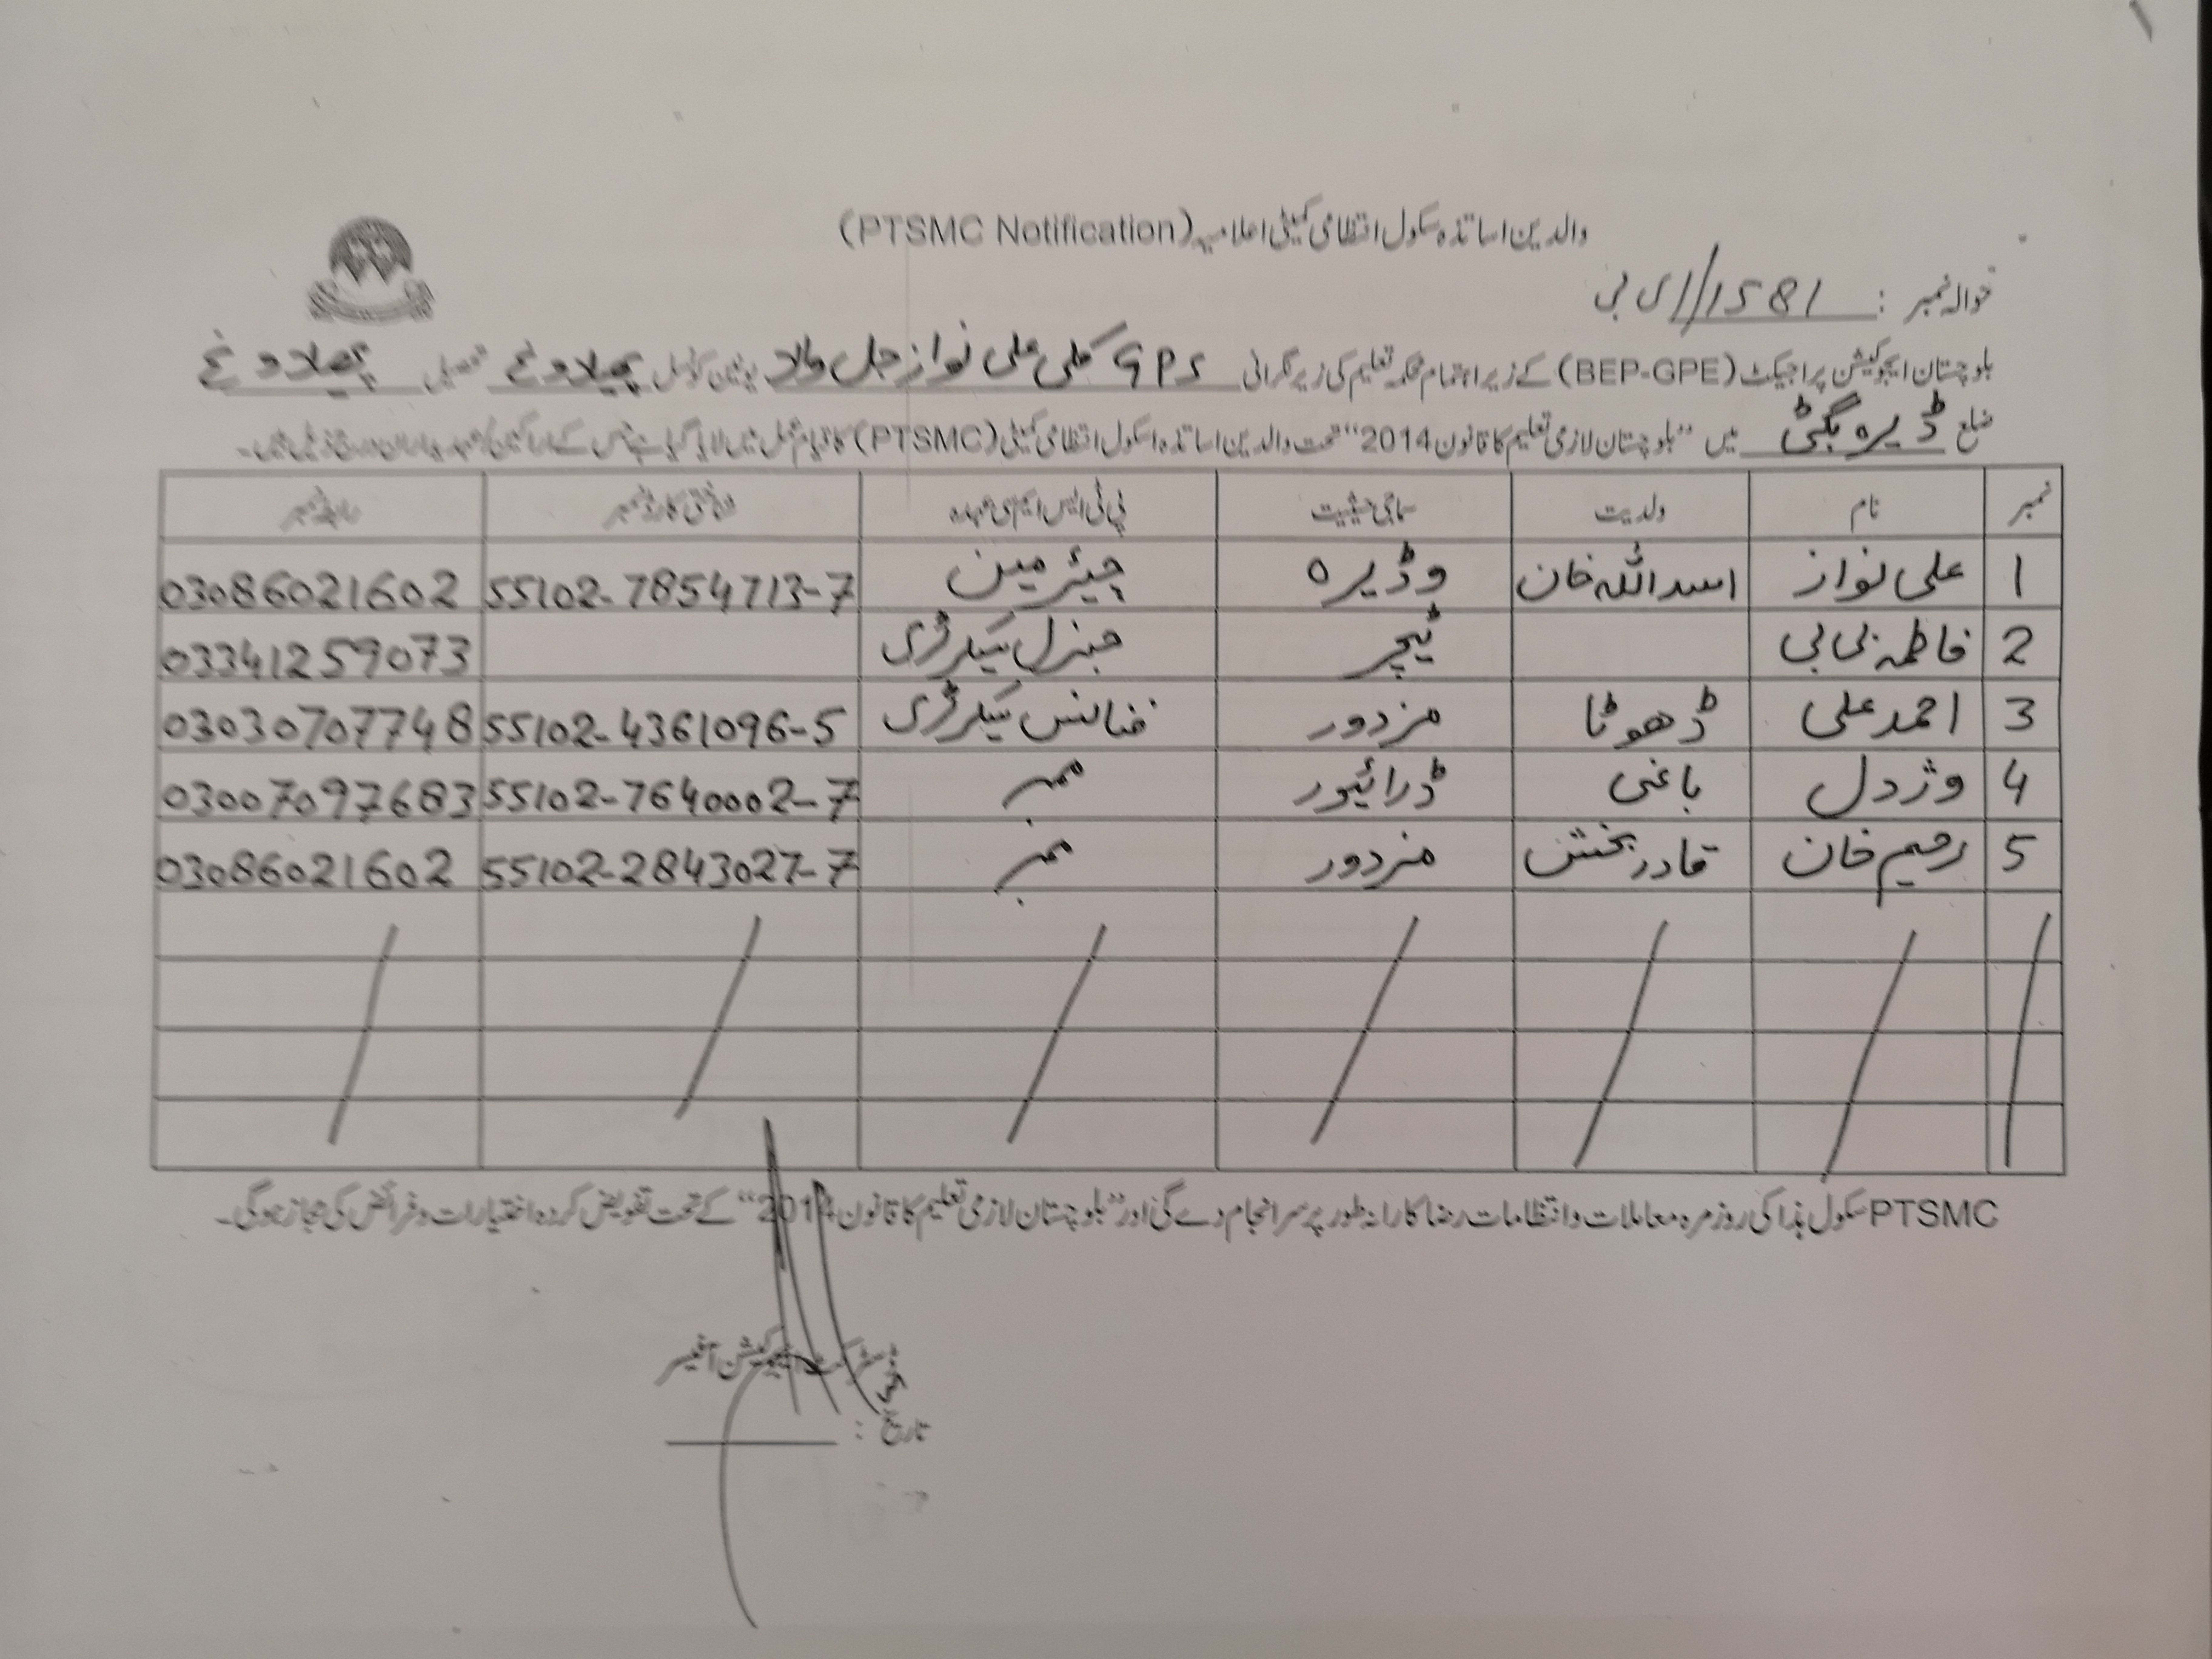 والدین اساتذہ سکول انتظامی کمیٹی اعلامیہ (PTSMC Notification)
حوالہ نمبر : 1581// ای بی
بلوچستان ایجوکیشن پراجیکٹ (BEP-GPE) کے زیر اہتمام محکمہ تعلیم کی زیر نگرانی GPS کلی علی نواز جل والا یونین کونسل پھیلاوغ تحصیل پھیلاوغ
ضلع ڈیرہ بگٹی میں "بلوچستان لازمی تعلیم کا قانون 2014" تحت والدین اساتذہ اسکول انتظامی کمیٹی (PTSMC) کا قیام عمل میں لایا گیا ہے جس کے اراکین / عہدیداران درج ذیل ہیں۔
نمبر نام ولدیت سماجی حیثیت پی ٹی ایس ایم سی عہدہ شناختی کارڈ نمبر رابطہ نمبر
1 علی نواز اسد اللہ خان وڈیرہ چیئرمین 55102-7854713-7 03086021602
2 فاطمہ بی بی ٹیچر جنرل سیکرٹری 03341259073
3 احمد علی ڈھوٹا مزدور فنانس سیکرٹری 55102-4361096-5 03030707748
4 وژدل باغی ڈرائیور ممبر 55102-7640002-7 03007097683
5 رحیم خان قادر بخش مزدور ممبر 55102-2843027-7 03086021602
PTSMC سکول ہذا کی روزمرہ معاملات و انتظامات رضاکارانہ طور پر سرانجام دے گی اور "بلوچستان لازمی تعلیم کا قانون 2014" کے تحت تفویض کردہ اختیارات و فرائض کی مجاز ہوگی۔
ڈسٹرکٹ ایجوکیشن آفیسر
تاریخ :